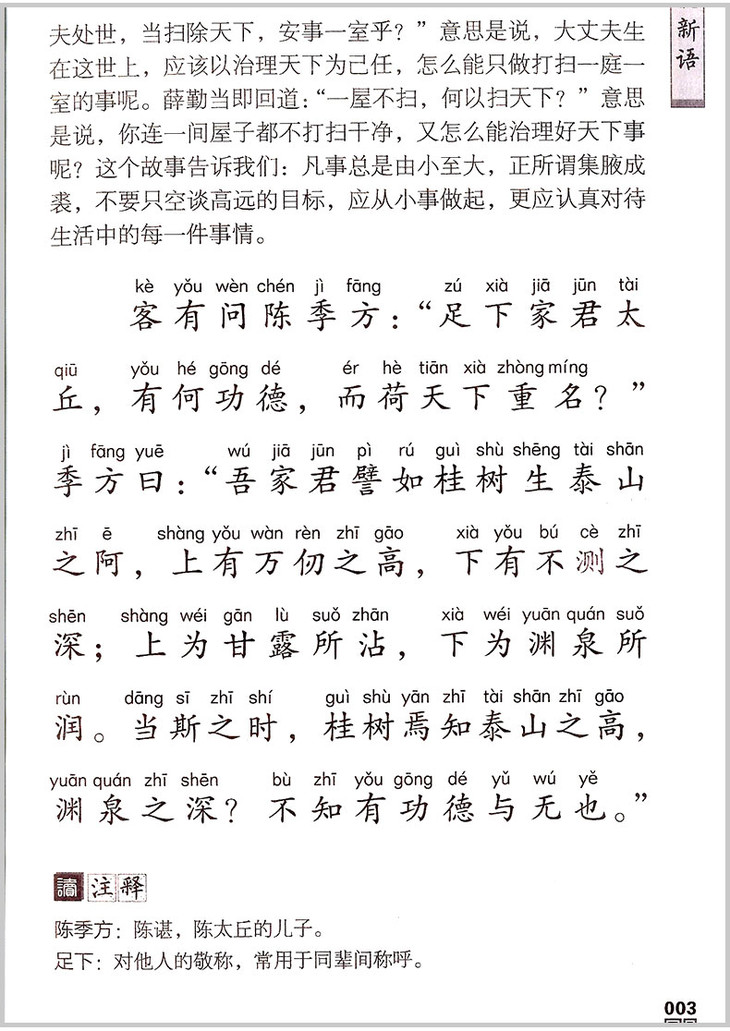 新语
夫处世，当扫除天下，安事一室乎？”意思是说，大丈夫生
在这世上，应该以治理天下为己任，怎么能只做打扫一庭一
室的事呢。薛勤当即回道：“一屋不扫，何以扫天下？”意思
是说，你连一间屋子都不打扫干净，又怎么能治理好天下事
呢？这个故事告诉我们：凡事总是由小至大，正所谓集腋成
裘，不要只空谈高远的目标，应从小事做起，更应认真对待
生活中的每一件事情。
kè yǒu wèn chén jì fāng zú xià jiā jūn tài
客有问陈季方：“足下家君太
qiū yǒu hé gōng dé ér hè tiān xià zhòng míng
丘，有何功德，而荷天下重名？”
jì fāng yuē wú jiā jūn pì rú guì shù shēng tài shān
季方曰：“吾家君譬如桂树生泰山
zhī ē shàng yǒu wàn rèn zhī gāo xià yǒu bú cè zhī
之阿，上有万仞之高，下有不测之
shēn shàng wéi gān lù suǒ zhān xià wéi yuān quán suǒ
深；上为甘露所沾，下为渊泉所
rùn dāng sī zhī shí guì shù yān zhī tài shān zhī gāo
润。当斯之时，桂树焉知泰山之高，
yuān quán zhī shēn bù zhī yǒu gōng dé yǔ wú yě
渊泉之深？不知有功德与无也。”
讀注释
陈季方：陈谌，陈太丘的儿子。
足下：对他人的敬称，常用于同辈间称呼。
003